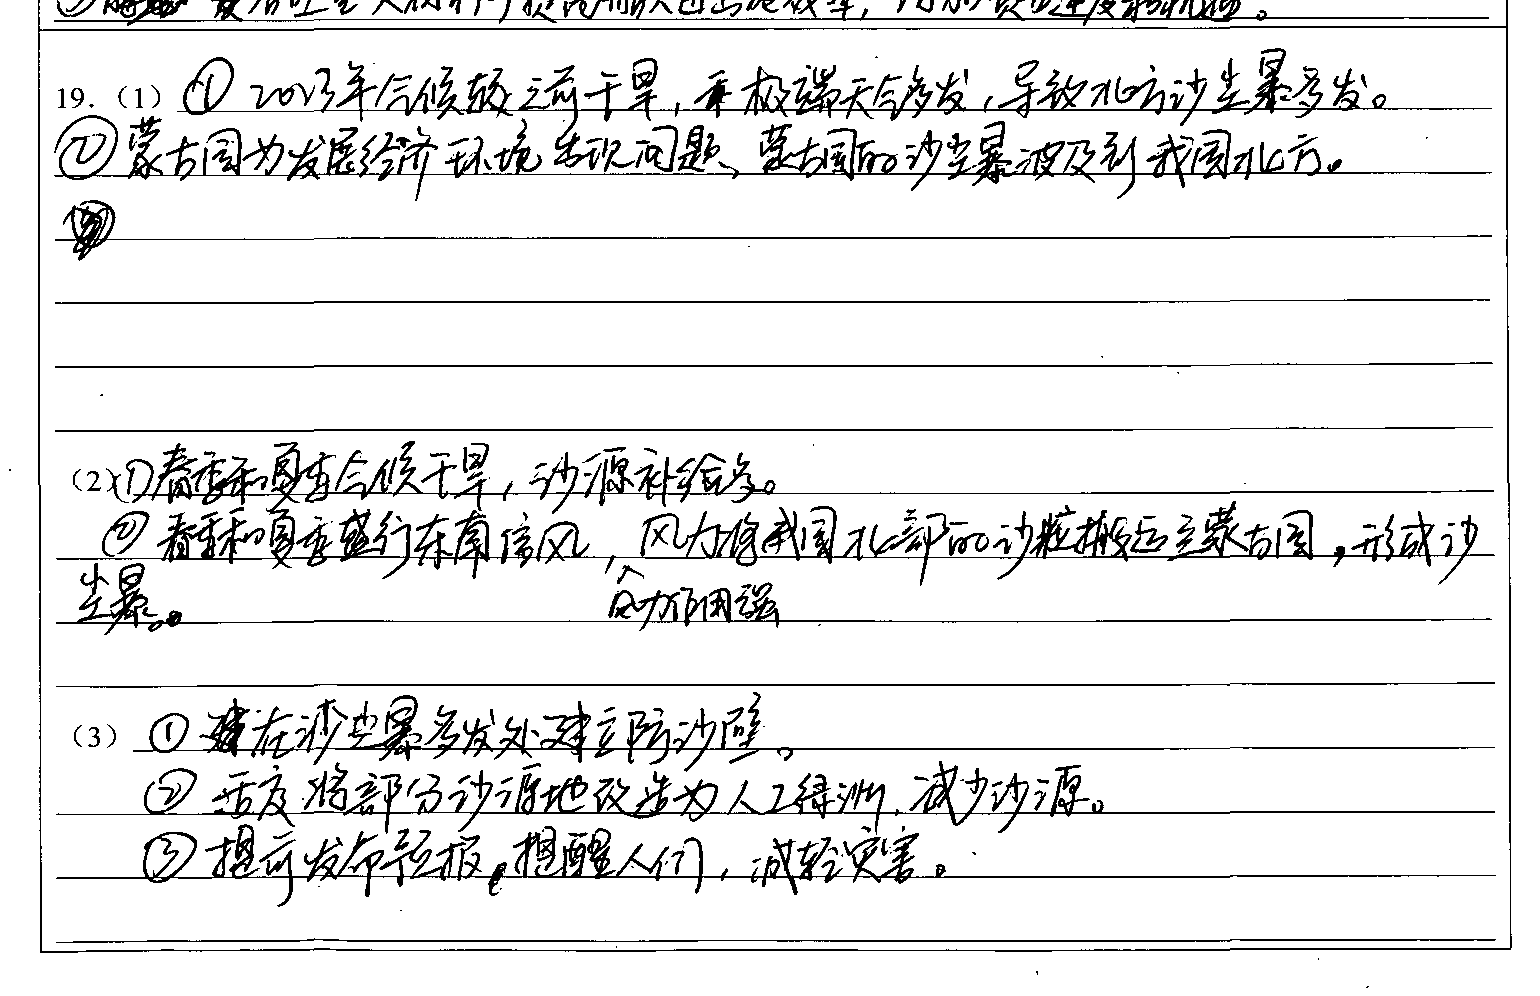 19.（1）① 2023年气候较之前干旱，极端天气多发，导致北方沙尘暴多发。
② 蒙古国为发展经济环境出现问题、蒙古国的沙尘暴波及到我国北方。
（2）①春季和夏季气候干旱，沙源补给多。
② 春季和夏季盛行东南信风，风力作用强，风力将我国北部的沙粒搬运至蒙古国，形成沙
尘暴。
（3）① 在沙尘暴多发处建立防沙壁。
② 适度将部分沙源地改造为人工绿洲，减少沙源。
③ 提前发布预报，提醒人们，减轻灾害。